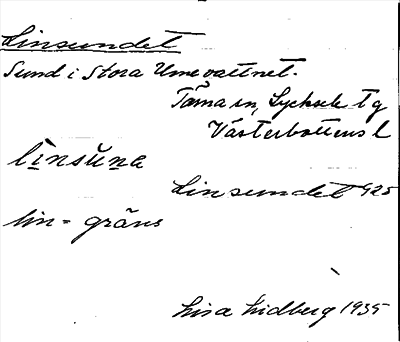 Linsundet
Sund i Stora Umevattnet.
Tärna sn, Lycksele tg
Västerbottens l
li̱nsŭṉa
Linsundet 925
lin = gräns
Lisa Lidberg 1935